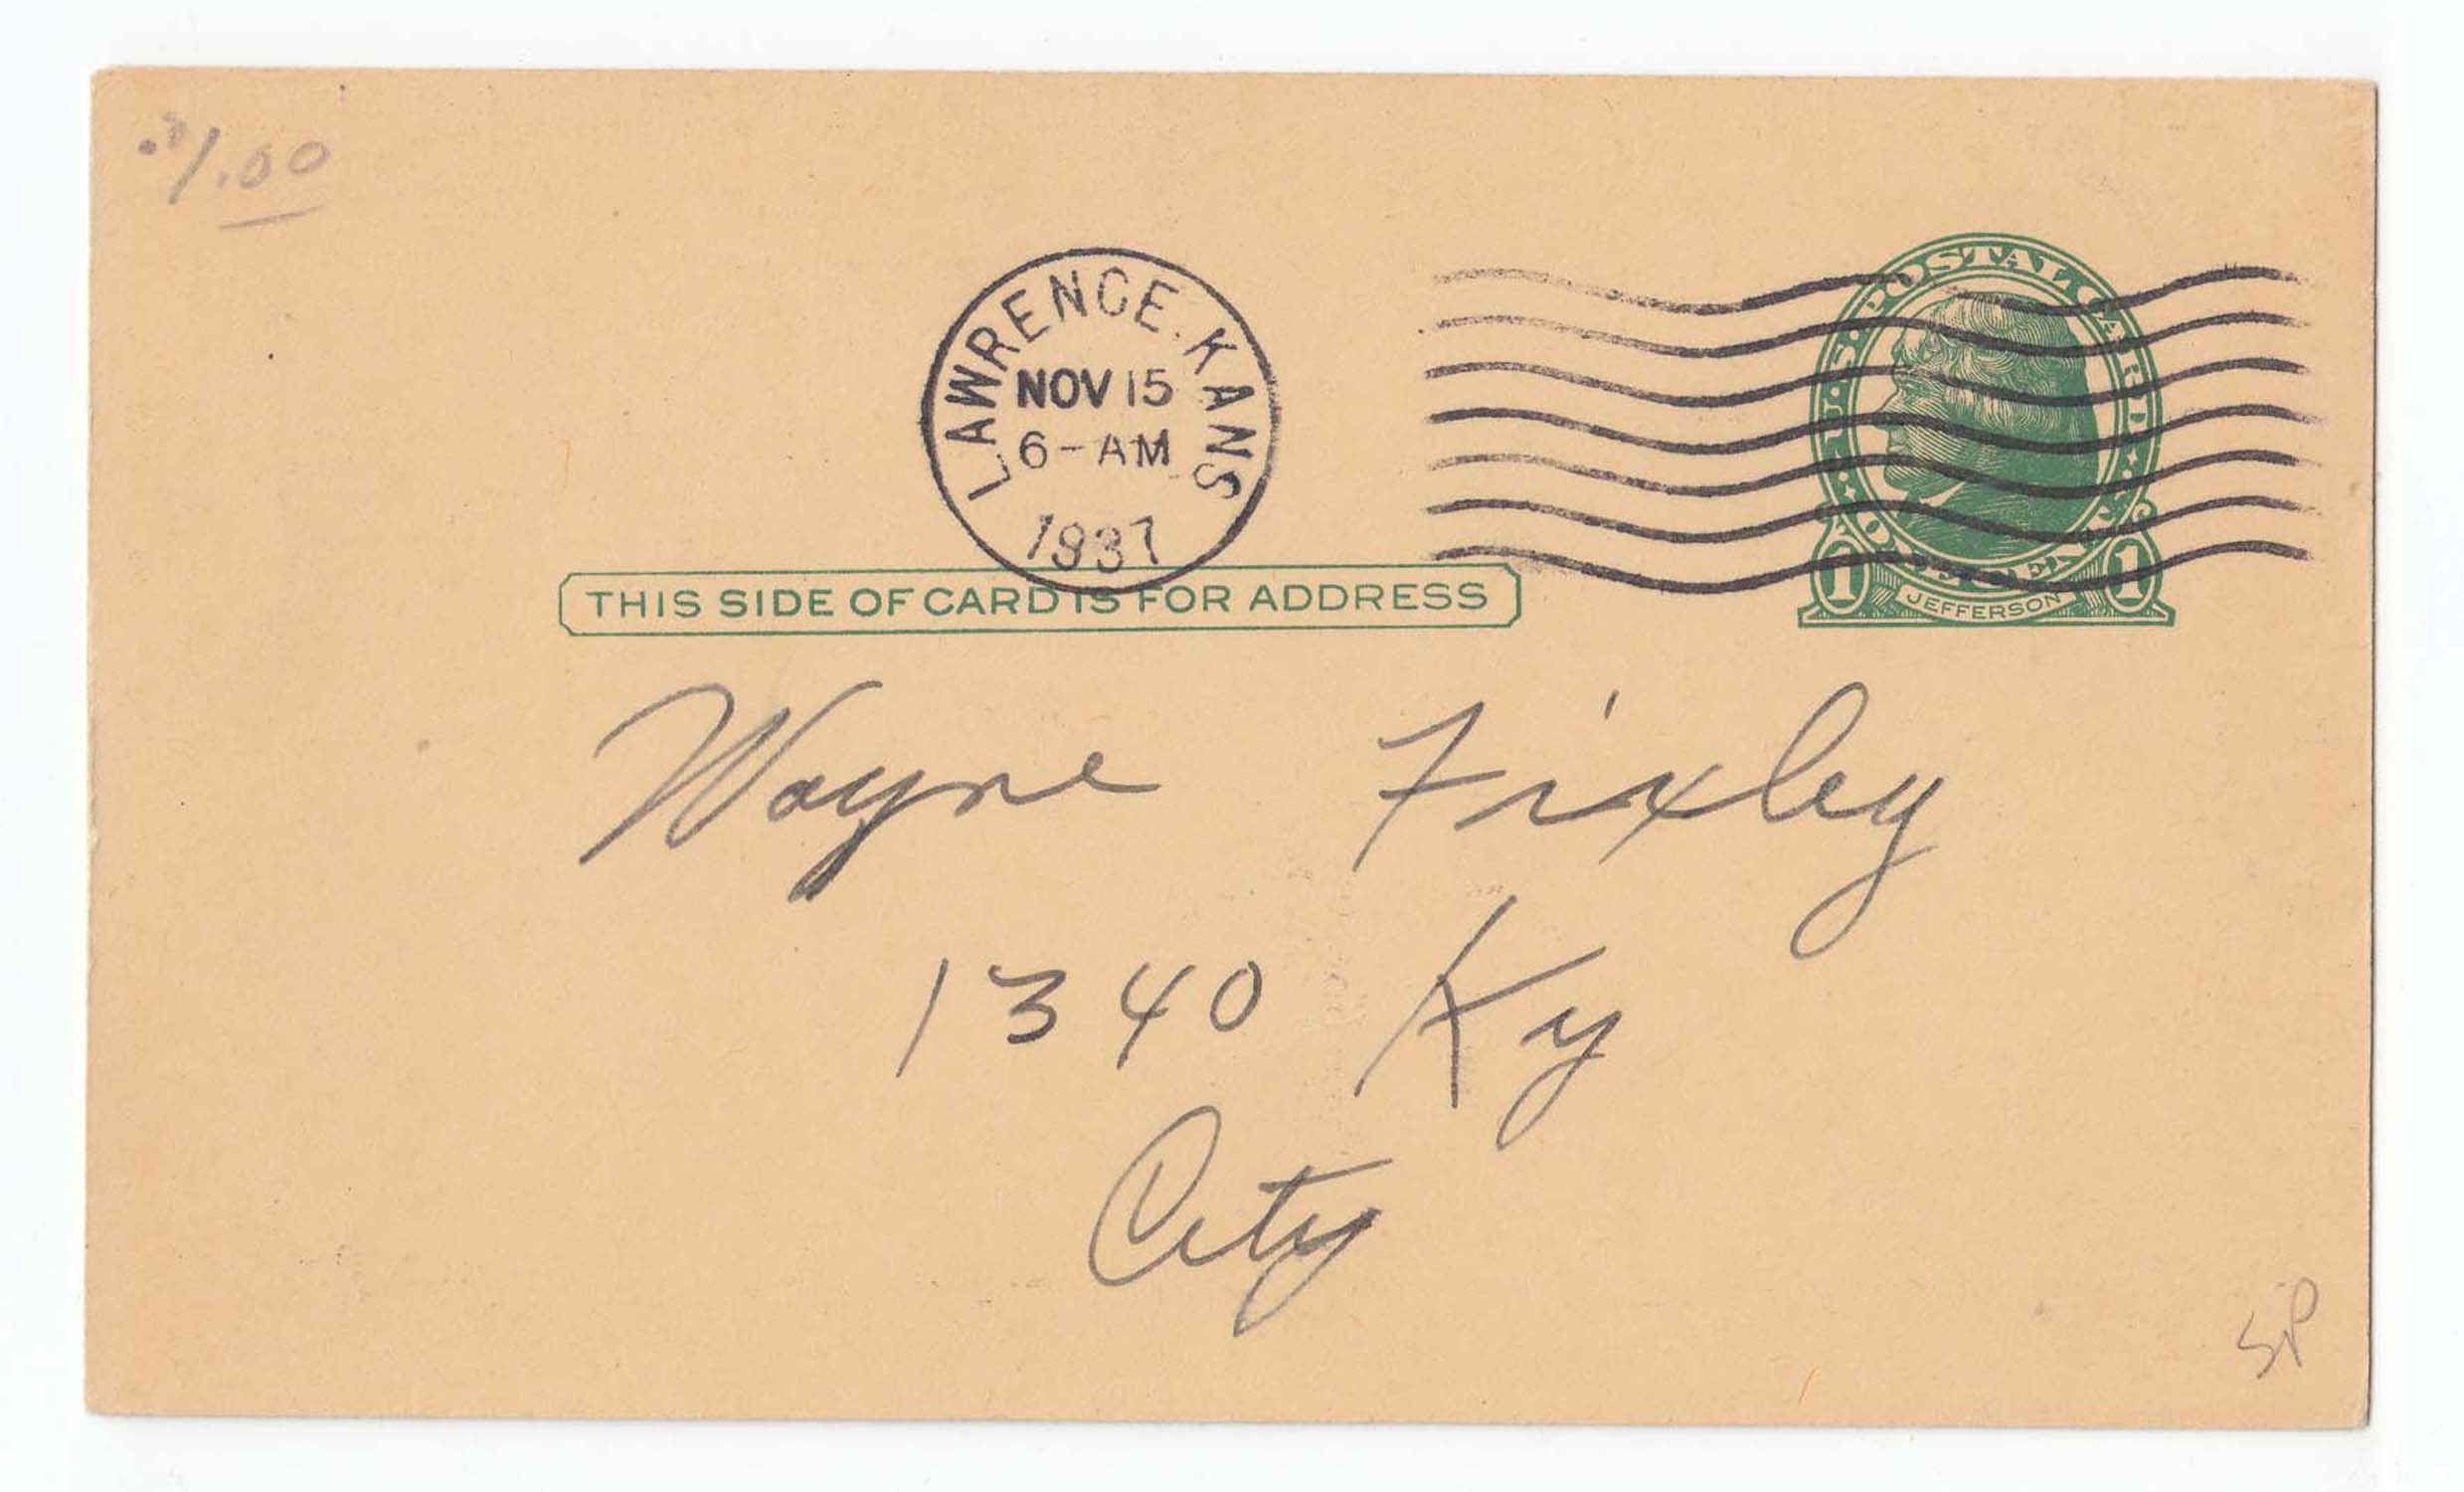 1.00
LAWRENCE. KANS
NOV 15
6-AM
1937
U.S. POSTAL CARD
ONE CENT
1 1
JEFFERSON
THIS SIDE OF CARD IS FOR ADDRESS
Wayne Fixley
1340 Ky
City